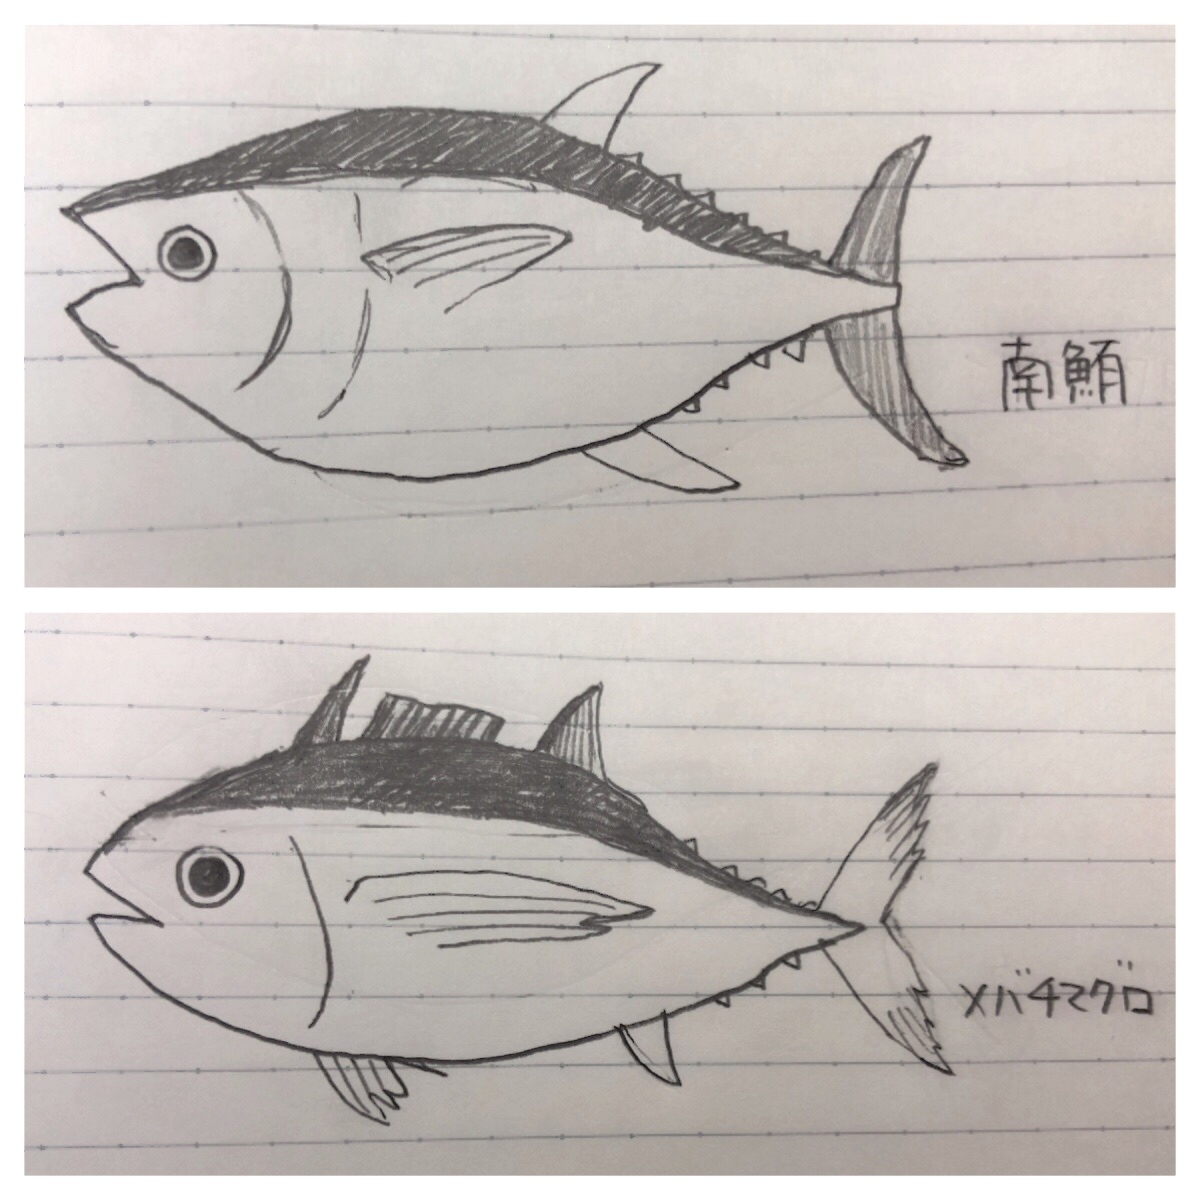 南鮪
メバチマグロ